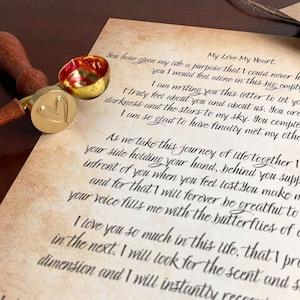 My Love My Heart,
You have given my life a purpose that I could never
you I would feel alone in this big empt
I am writing you this letter to let yo
I truly feel about you and about us. You are
darkness and the stars to my sky. You comple
I am so glad to have finally met my othe
As we take this journey of life together I
your side holding your hand, behind you supp
infront of you when you feel lost. You make m
and for that I will forever be greatful to
your voice fills me with the butterflies of
I love you so much in this life, that I pr
in the next. I will look for the scent and s
dimension and I will instantly reco